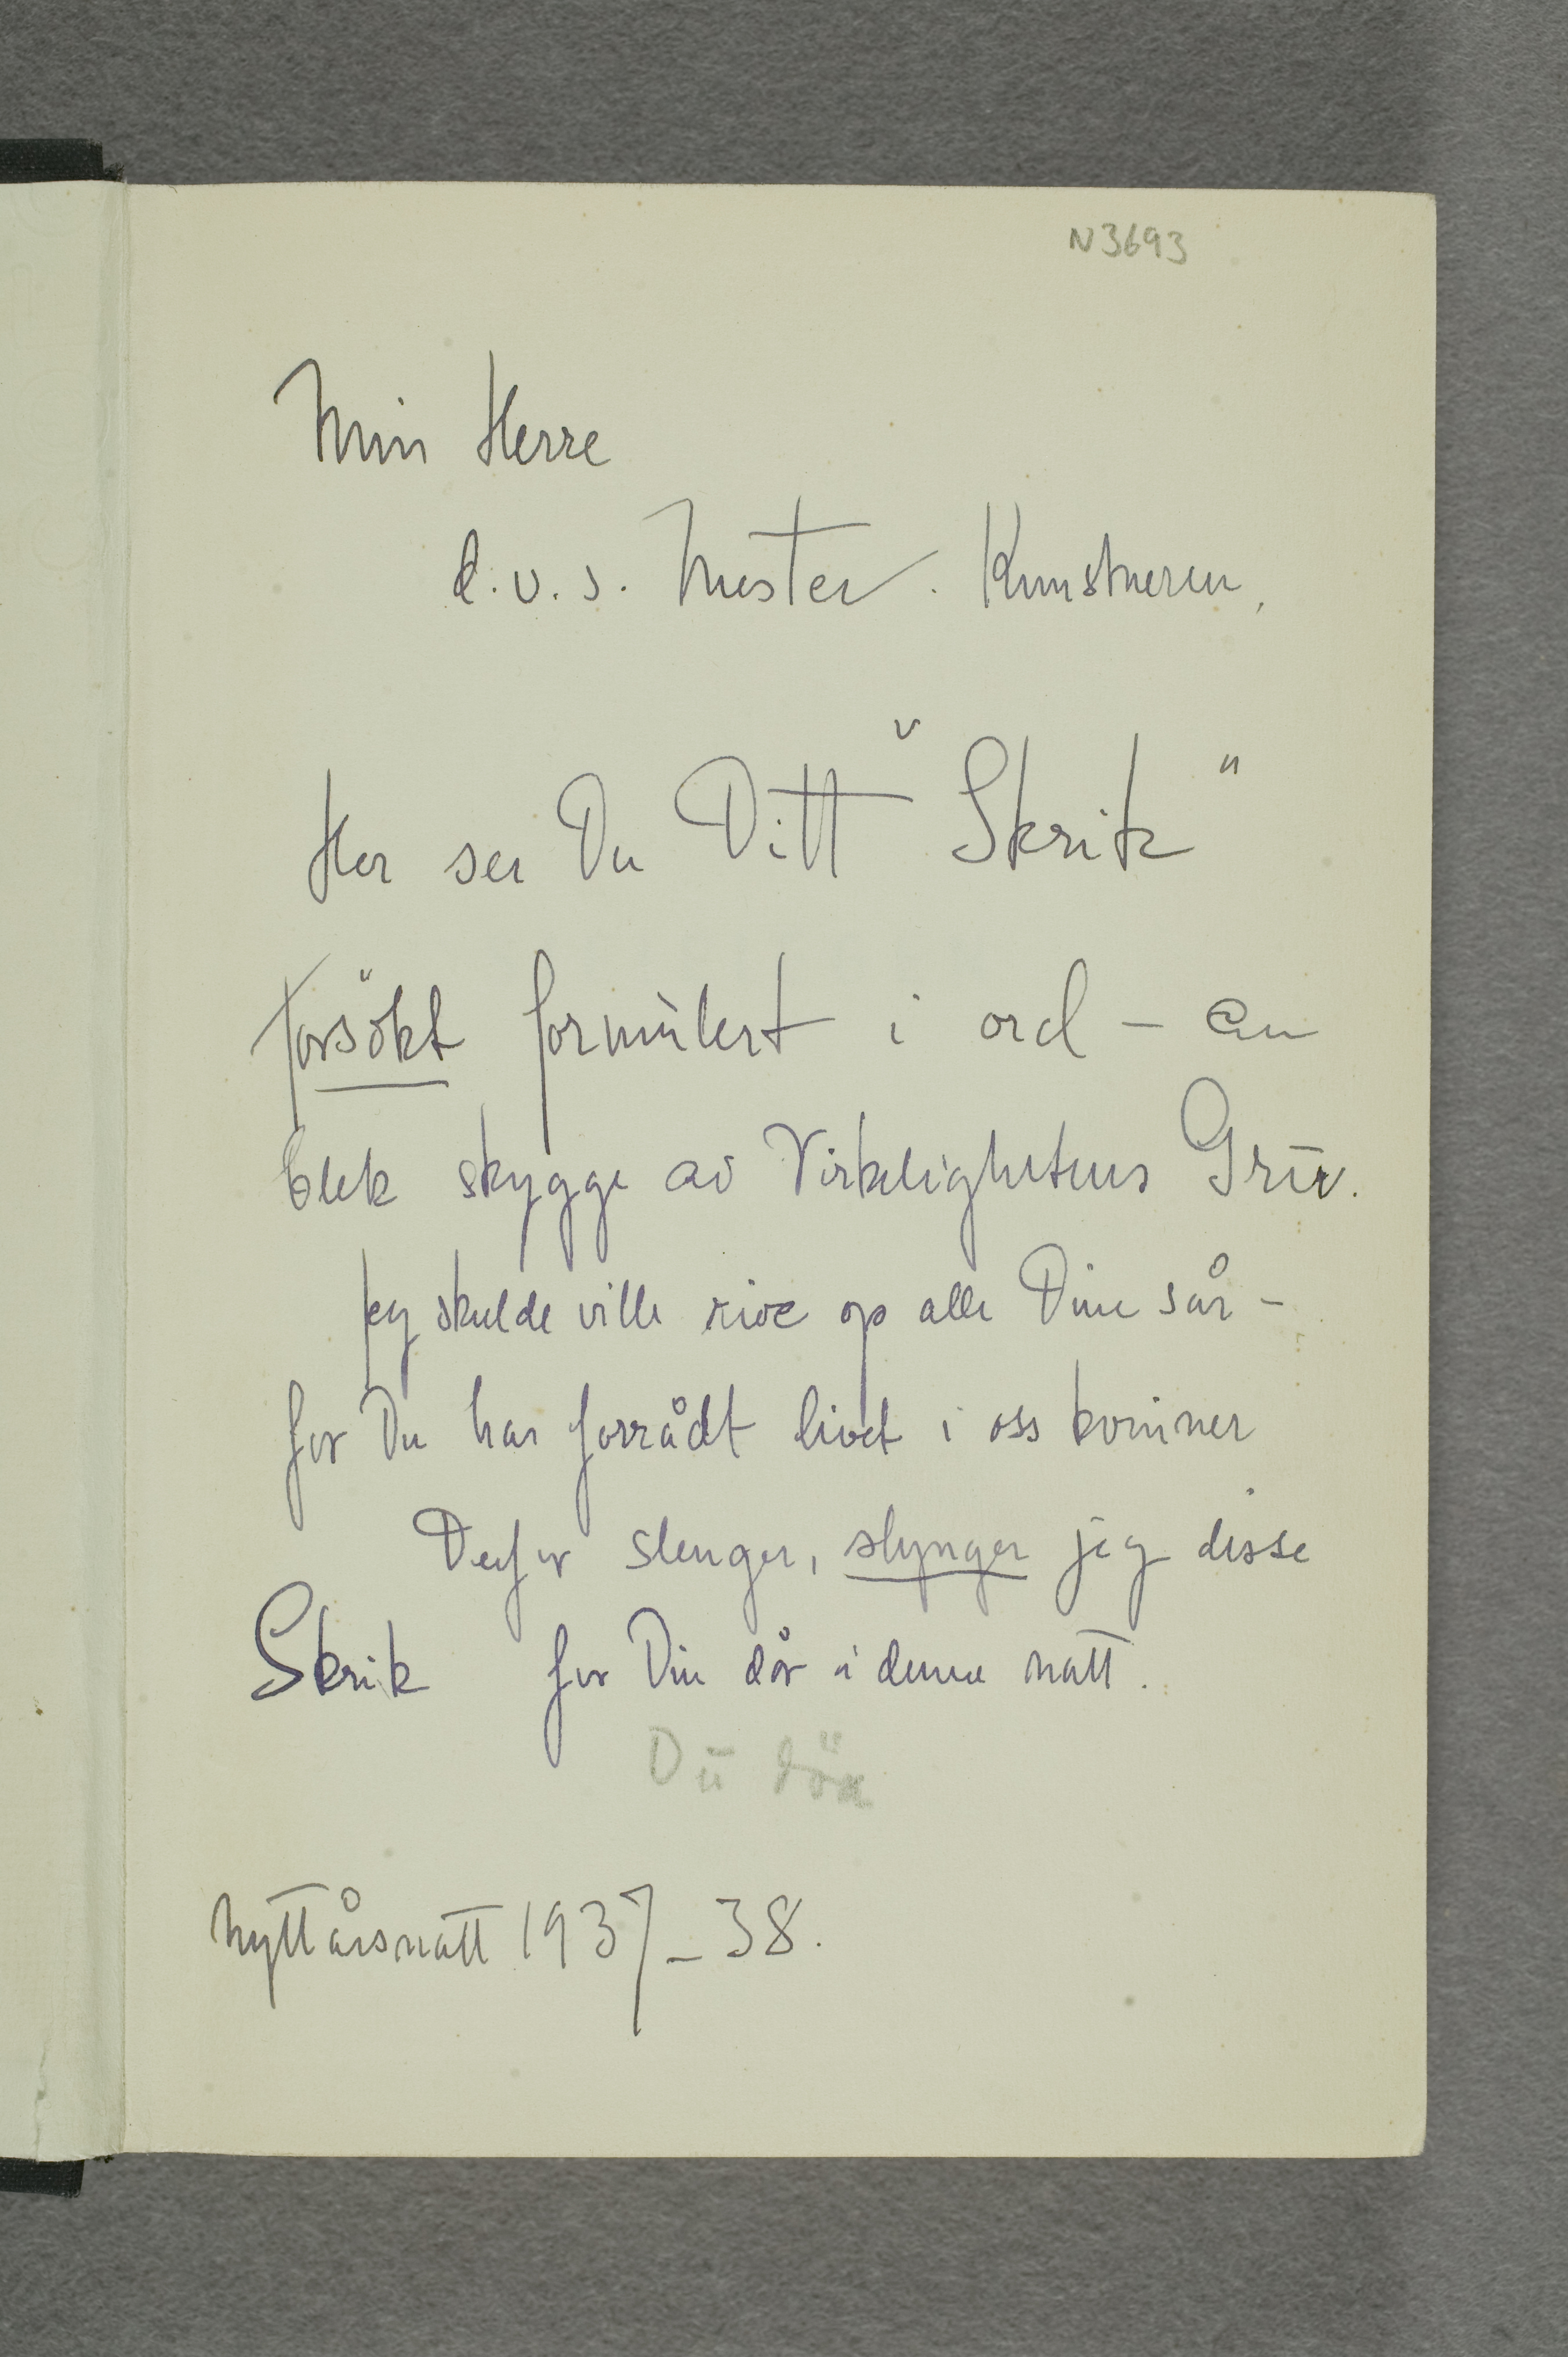 N3693
Min Herre
d.v.s. Mester. Kunstneren,
Her ser Du Ditt "Skrik"
forsökt formulert i ord – en
blek skygge av Virkelighetens Gru.
Jeg skulde ville rive op alle Dine sår –
for Du har forrådt livet i oss kvinner
Derfor slenger, slynger jeg disse
Skrik for Din dör i denne natt.
Du
Nyttårsnatt 1937–38.